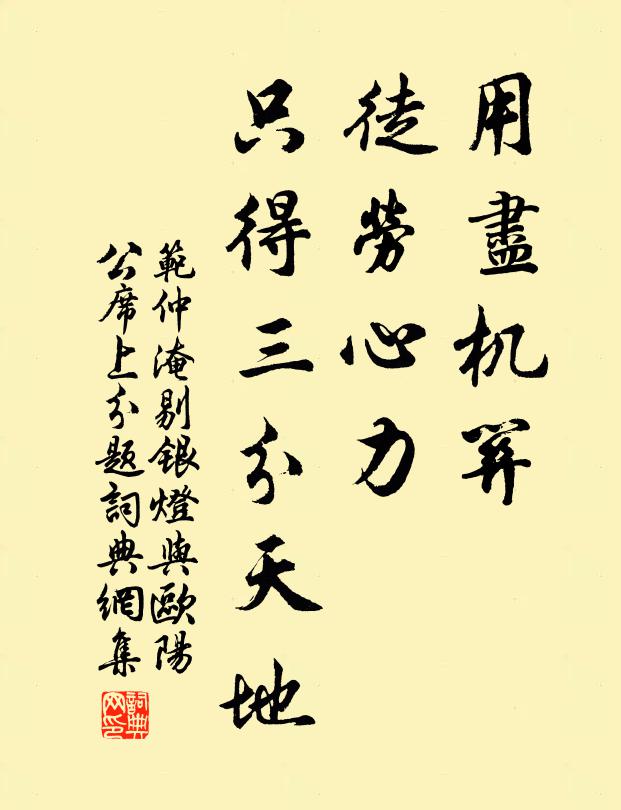 用盡机筭
徒勞心力
只得三分天地
範仲淹剔銀燈與歐陽
公席上分題詞典網集
詞典網印